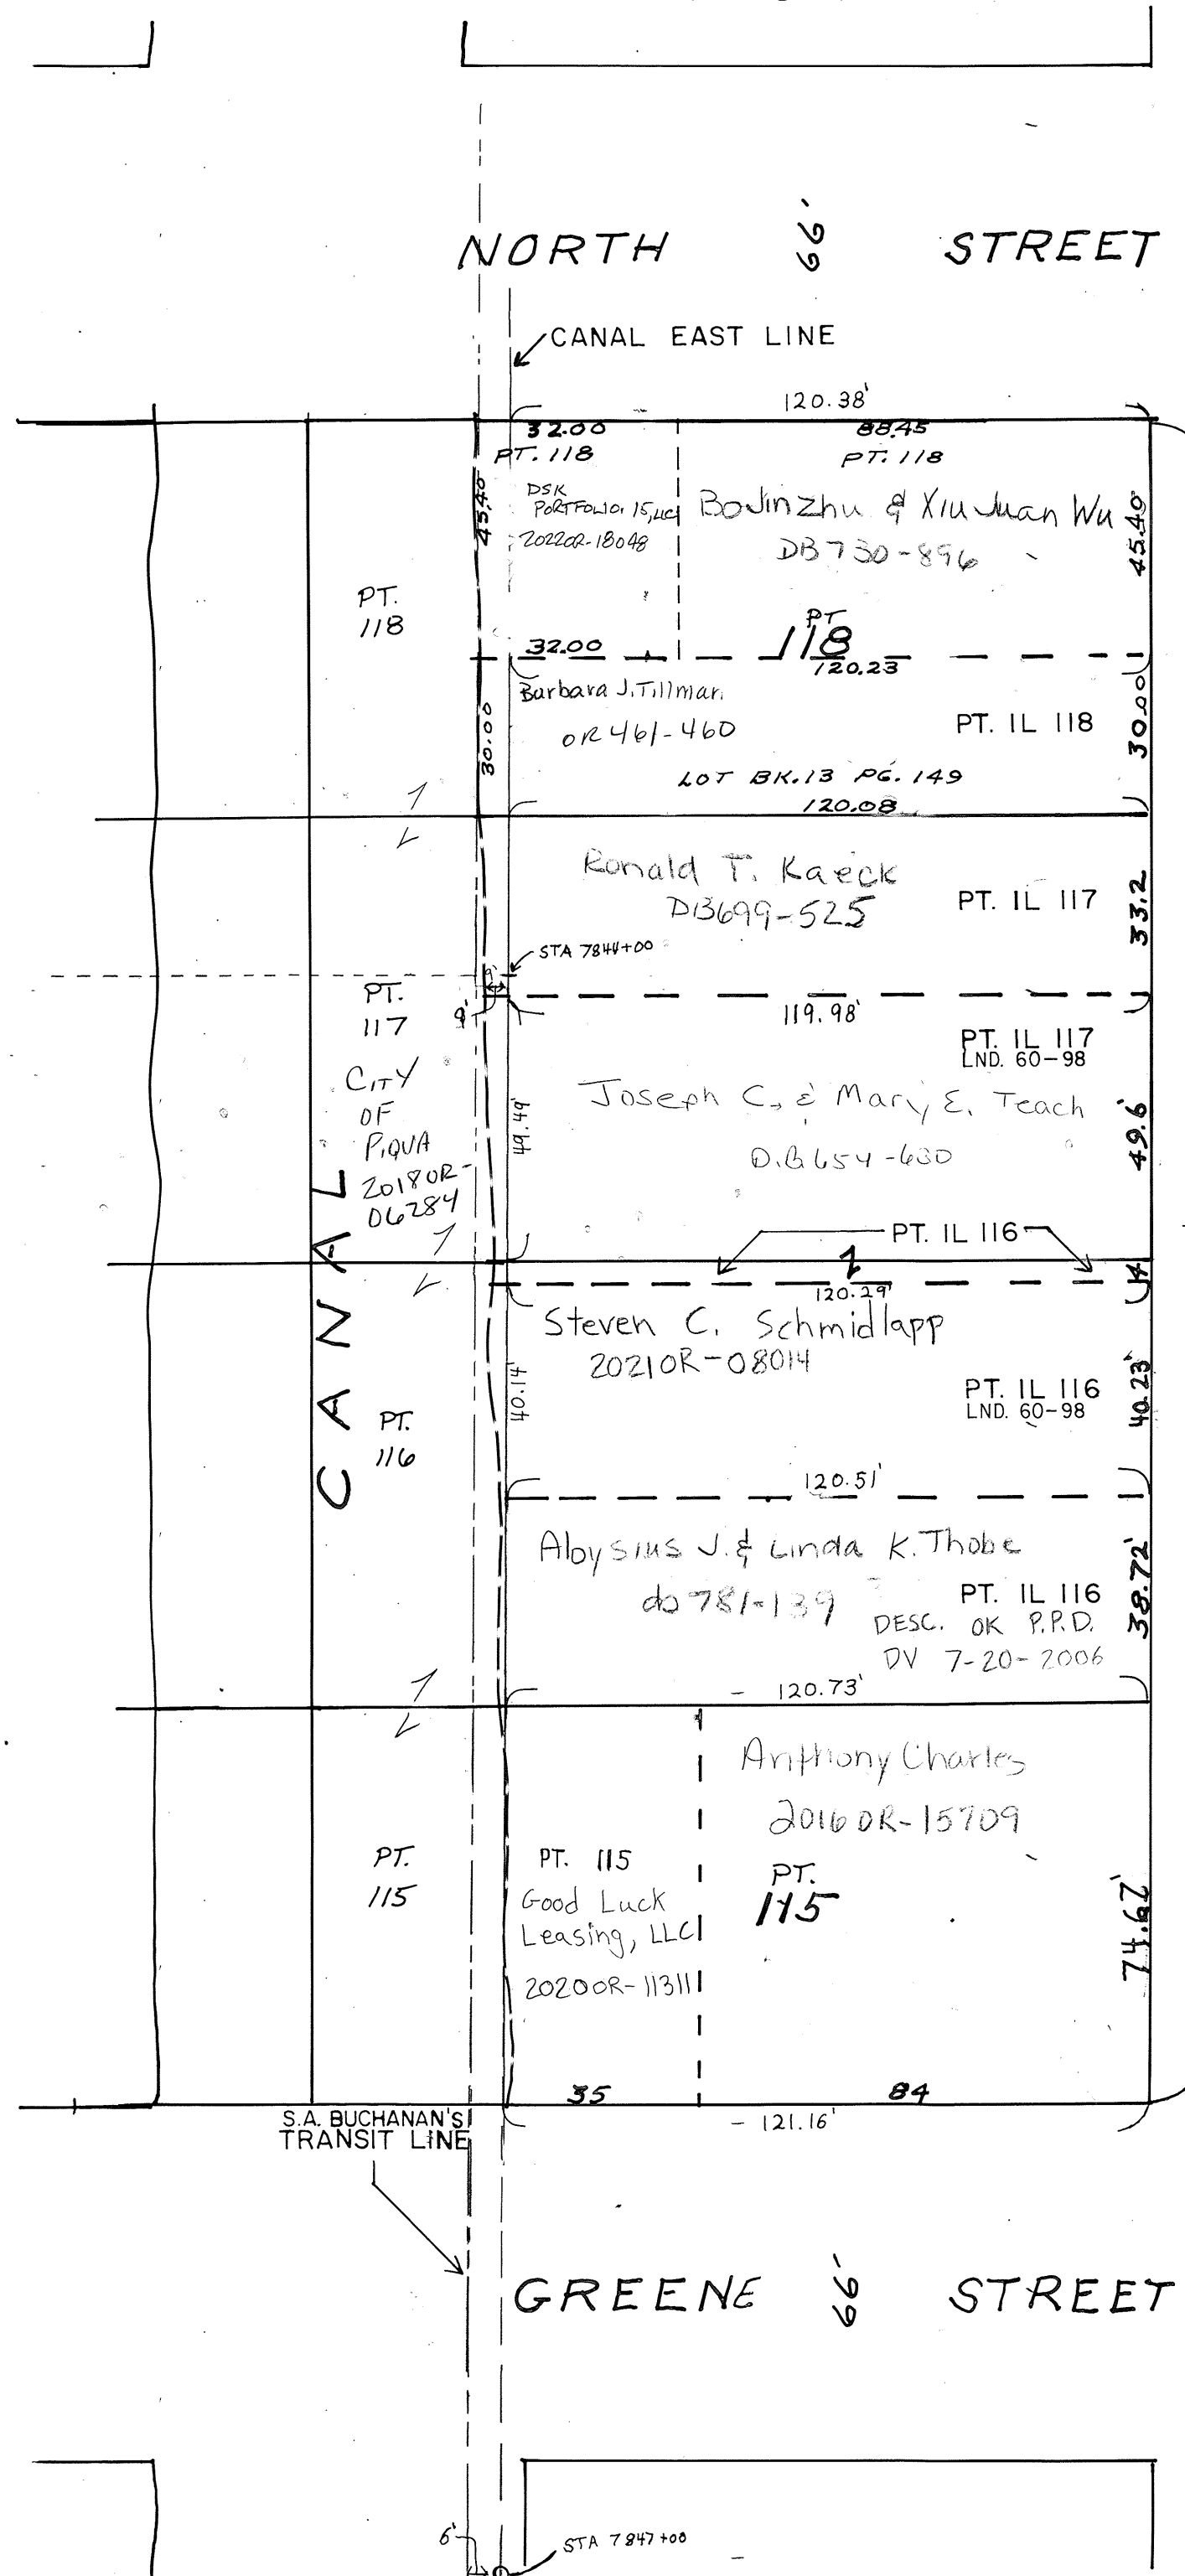 NORTH 66' STREET
CANAL EAST LINE
120.38'
32.00 88.45
PT. 118 PT. 118
45.40
DSK
PORTFOLIO 15, LLC
2022OR-18048
BoJinzhu & XiuJuan Wu
DB 730-896
45.40
PT.
118
PT
118
32.00
120.23
Barbara J. Tillman
OR 461-460
PT. IL 118
30.00
30.00
LOT BK.13 PG. 149
120.08
Ronald T. Kaeck
DB699-525
PT. IL 117
33.2
STA 7844+00
9'
9'
119.98'
PT.
117
PT. IL 117
LND. 60-98
CITY
OF
PIQUA
2018OR-
06284
Joseph C. & Mary E. Teach
D.B 654-630
49.49'
49.6'
CANAL
PT. IL 116
4
120.29'
Steven C. Schmidlapp
2021OR-08014
PT. IL 116
LND. 60-98
40.14'
40.23'
PT.
116
120.51'
Aloysius J. & Linda K. Thobe
db 781-139
PT. IL 116
DESC. OK P.P.D.
DV 7-20-2006
38.72'
120.73'
Anthony Charles
2016OR-15709
PT.
115
PT. 115
Good Luck
Leasing, LLC
2020OR-11311
PT.
115
74.62'
35 84
121.16'
S.A. BUCHANAN'S
TRANSIT LINE
GREENE 66' STREET
6'
STA 7847+00